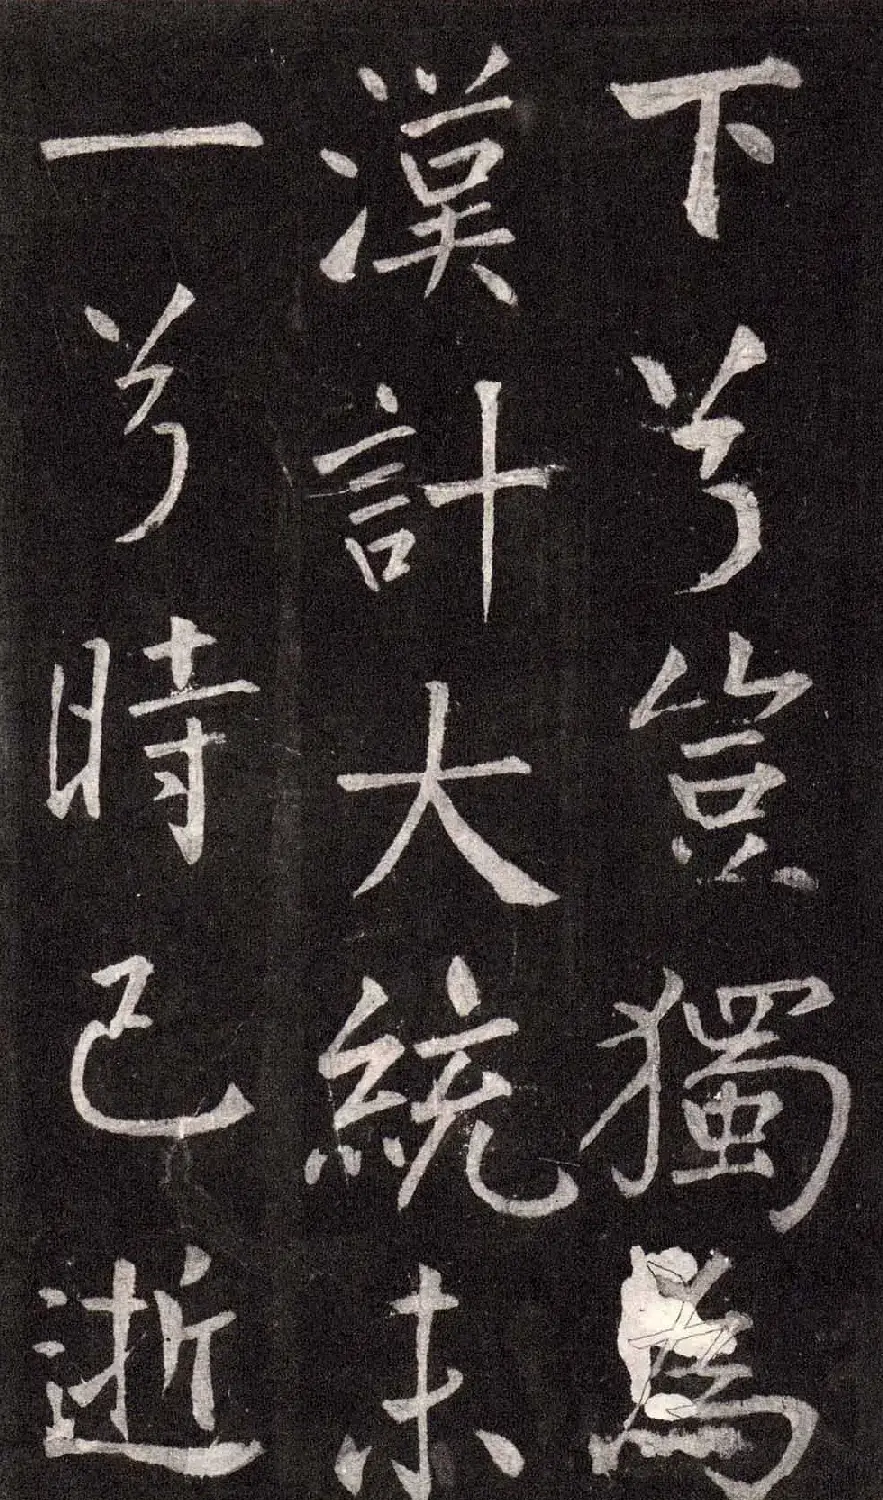 下兮豈獨為
漢計大統未
一兮時已逝